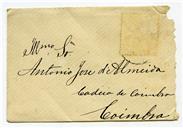 Illmo Sr
Antonio Jose d'Almeida
Cadeia de Coimbra
Coimbra